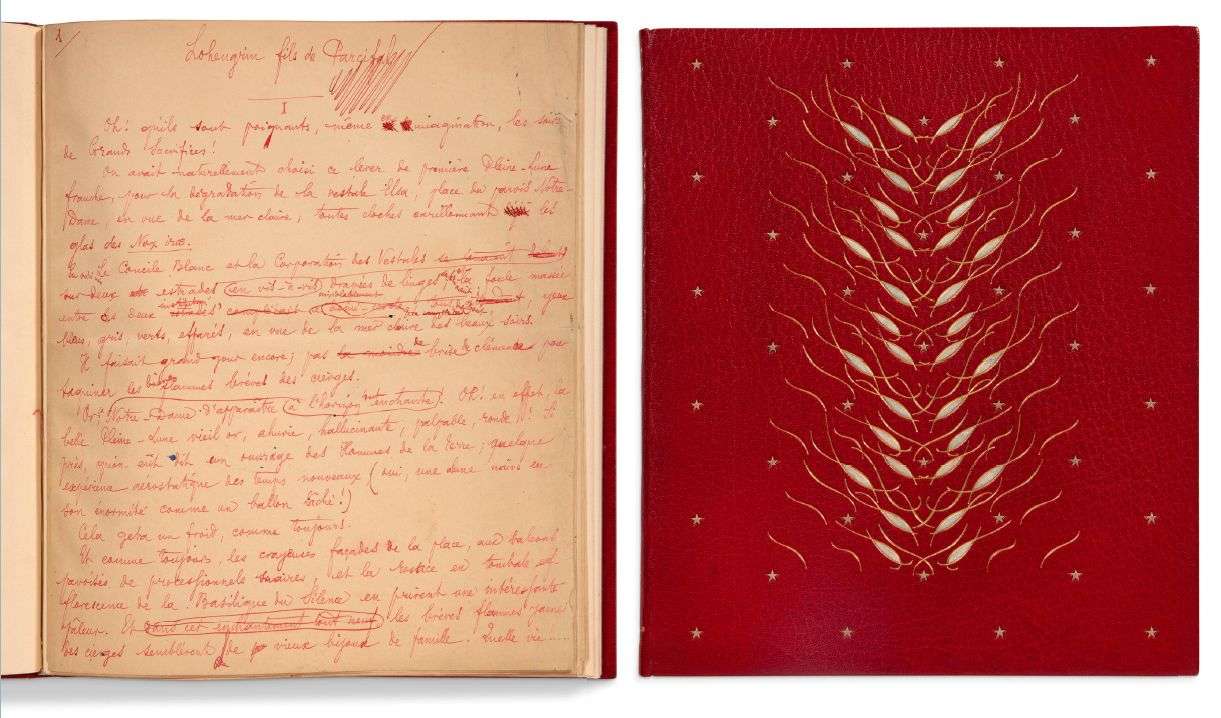 1
Lohengrin fils de Parsifal
I
Oh! qu'ils sont poignants, même imagination, les soirs
de Grands Sacrifices!
On avait naturellement choisi ce lever de première Pleine-Lune
franche, pour la dégradation de la vestale Elsa, place du parvis Notre-
Dame, en vue de la mer claire, toutes cloches carillonnant les
glas des Nox irae.
Le Concile Blanc et la Corporation des Vestales se tenaient
sur deux estrades en vis-à-vis drapées de linges, foule massée
entre ces deux estrades yeux
bleus, gris, verts, effarés, en vue de la mer claire des beaux soirs.
Il faisait grand jour encore; pas la moindre brise de clémence pour
taquiner les flammes brèves des cierges.
Or! Notre-Dame d'apparaître à l'horizon enchanté! Oh! en effet, la
belle Pleine-Lune vieil or, ahurie, hallucinante, palpable, ronde! Si
près, qu'on eût dit un ouvrage des Hommes de la Terre, quelque
expérience aérostatique des temps nouveaux (oui, une lune naïve en
son énormité comme un ballon lâché!)
Cela jeta un froid, comme toujours.
Et comme toujours, les crayeuses façades de la place, aux balcons
pavoisés de processionnels suaires, et la rosace en tombale ef-
florescence de la Basilique du Silence en prirent une intéressante
pâleur. Et dans cet enchantement tout neuf les brèves flammes jaunes
des cierges semblèrent de vieux bijoux de famille. Quelle vie.....